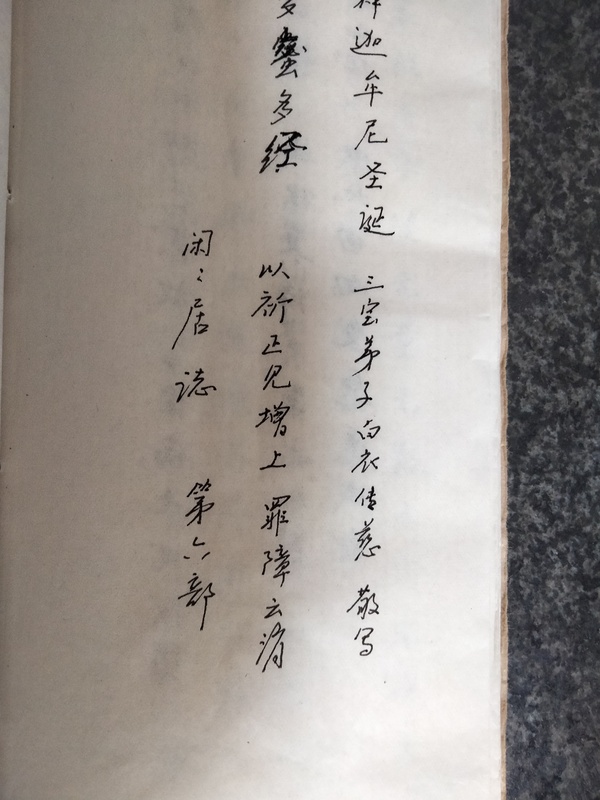 迦牟尼圣诞 三宝弟子白衣传慈 敬写
蜜多经 以祈正见增上 罪障云消
闲〻居誌 第六部